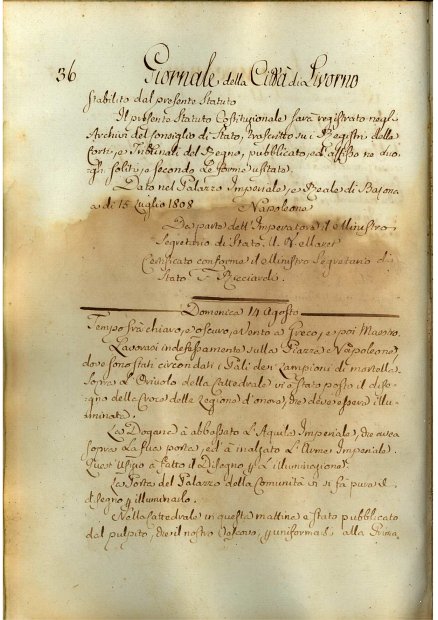 36 Giornale della Città di Livorno
stabilito dal presente Statuto
Il presente Statuto Costituzionale sarà registrato negli
Archivi del Consiglio di Stato, trascritto su i Registri delle
Corti, e Tribunali del Regno, pubblicato, ed affisso ne luo-
ghi soliti, e secondo le forme usitate.
Dato nel Palazzo Imperiale, e Reale di Bajona
a dì 15 Luglio 1808 Napoleone
Da parte dell'Imperatore il Ministro
Segretario di Stato U. B. Maret
Certificato conforme il Ministro Segretario di
Stato F. Ricciardi.
Domenica 14 Agosto
Tempo frà chiaro, e oscuro, e Vento a Greco, e poi Maestro.
Lavorasi indefessamente sulla Piazza Napoleone,
dove sono stati circondati i Pali dei Lampioni di mortella.
Sopra l'Oriuolo della Cattedrale vi è stato posto il dise-
gno della Croce della Legione d'onore, che deve essere illu-
minata.
La Dogana à abbassato l'Aquila Imperiale, che avea
sopra la sua porta, ed à inalzato l'Arme Imperiale.
Quest'Ufizio à fatto il Disegno p l'illuminazione.
La Porta del Palazzo della Comunità si fà pure il
disegno p illuminarlo.
Nella Cattedrale in questa mattina è stato pubblicato
dal pulpito, che il nostro Vescovo, p uniformarsi alla